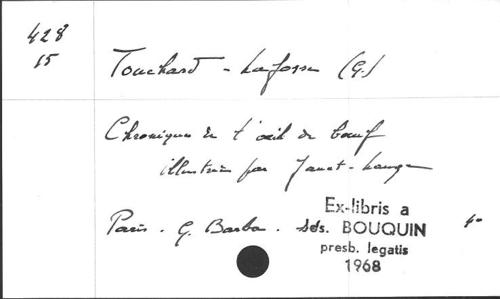 428
15
Touchard - Lafosse (G.)
Chroniques de l'œil de bœuf
illustrées par Janet-Lange
Paris. G. Barba. sds.
4°
Ex-libris a
BOUQUIN
presb. legatis
1968